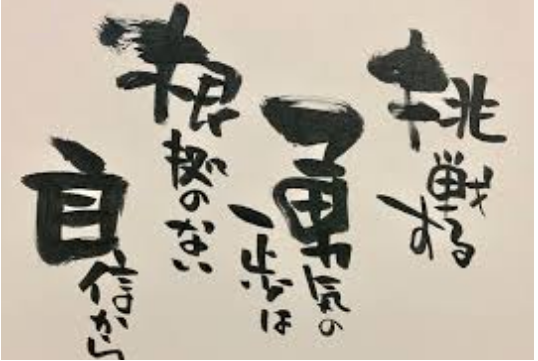 挑戦する
勇気の
一歩は
根拠のない
自信から